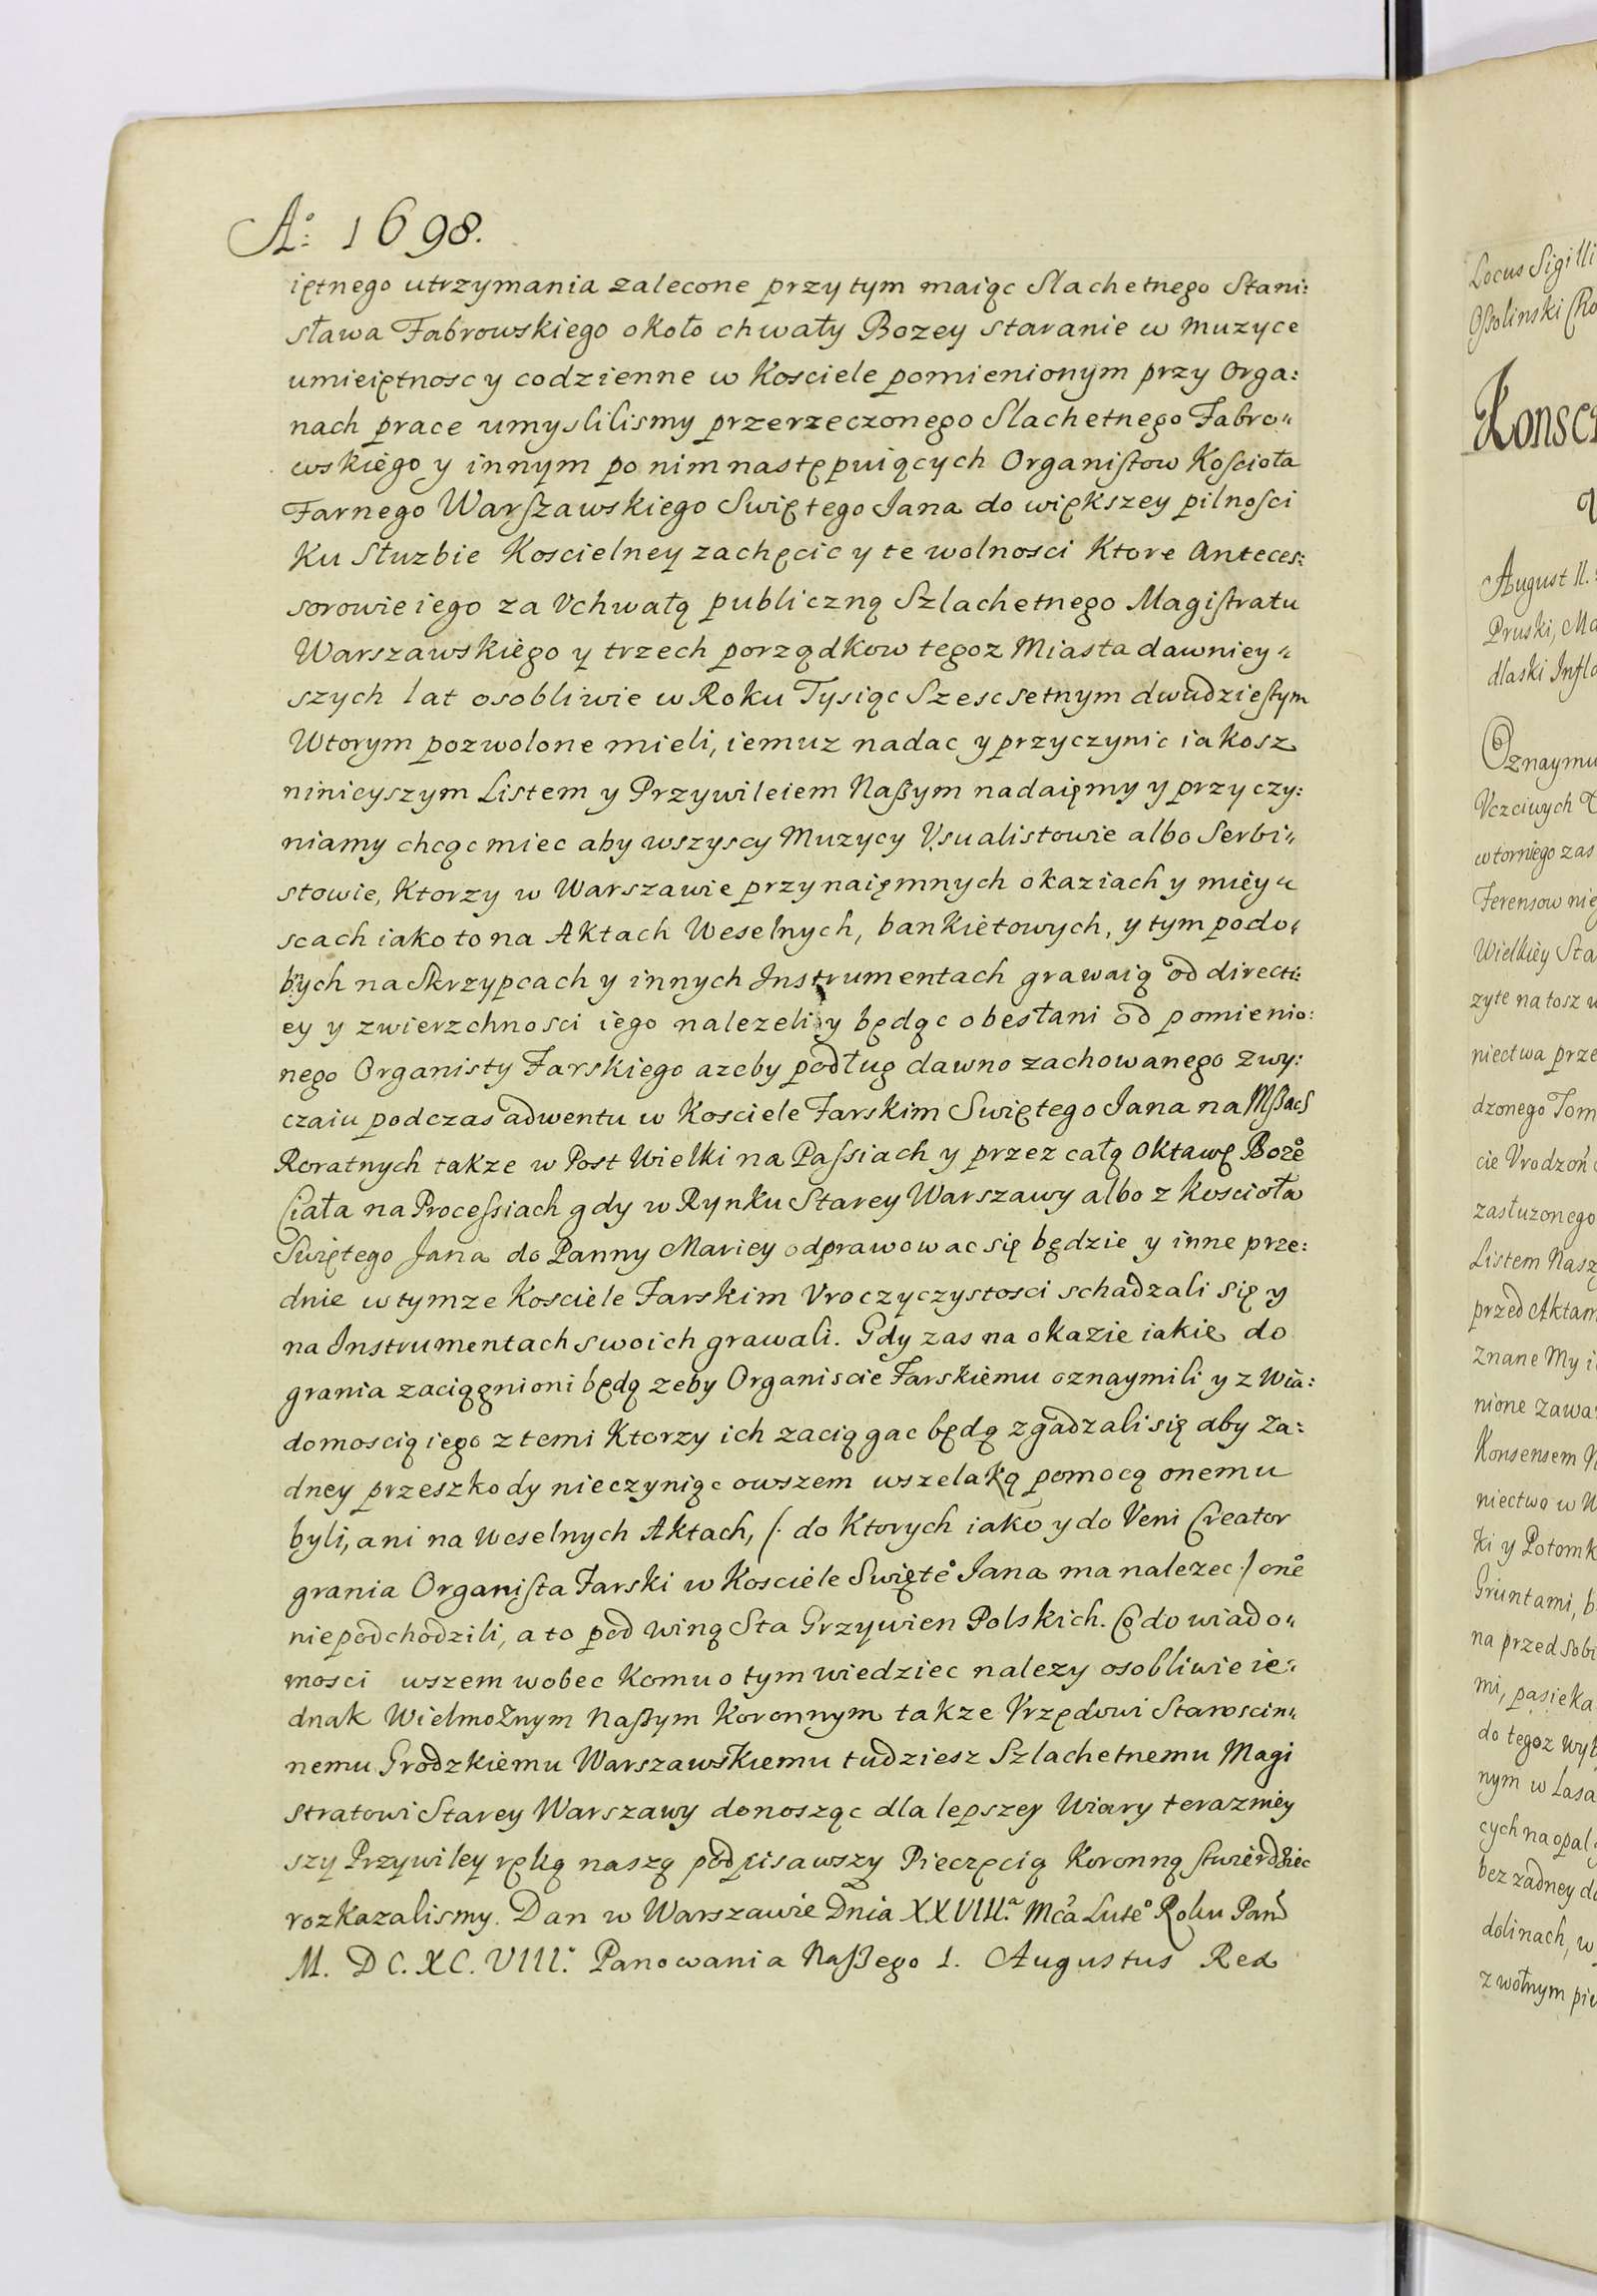 Aº: 1698.
iętnego utrzymania zalecone przytym maiąc Slachetnego Stani:
sława Fabrowskiego około chwały Bozey staranie w muzyce
umieiętnosc y codzienne w Kosciele pomienionym przy Orga:
nach prace umyslilismy przerzeczonego Slachetnego Fabro„
wskiego y innym po nim następuiących Organistow Kościoła
Farnego Warszawskiego Swiętego Jana do większey pilnosci
Ku Słuzbie Koscielney zachęcic y te wolnosci Ktore Anteces:
sorowie iego za Vchwałą publiczną Szlachetnego Magistratu
Warszawskiego y trzech porządkow tegoz Miasta dawniey„
szych lat osobliwie w Roku Tysiąc Szescsetnym dwudziestym
Wtorym pozwolone mieli, iemuz nadac y przyczynic iakosz
ninieyszym Listem y Przywileiem Naßym nadaięmy y przyczy:
niamy chcąc miec aby wszyscy Muzycy Vsualistowie albo Serbi„
stowie, Ktorzy w Warszawie przynaięmnych okaziach y miey„
scach iako to na Aktach Weselnych, bankietowych, y tym podo„
bnych na Skrzypcach y innych Instrumentach grawaią od directi:
ey y zwierzchnosci iego nalezeli y będąc obesłani od pomienio:
nego Organisty Farskiego azeby podług dawno zachowanego zwy:
czaiu podczas adwentu w Kosciele Farskim Swiętego Jana na Mßach
Roratnych takze w Post Wielki na Passiach y przez całą Oktawę Bożeº
Ciała na Processiach gdy w Rynku Starey Warszawy albo z Koscioła
Swiętego Jana do Panny Mariey odprawowac się będzie y inne prze:
dnie wtymze Kosciele Farskim Vroczyczystosci schadzali się y
na Instrumentach swoich grawali. Gdy zas na okazie iakie do
grania zaciągnioni będą zeby Organiscie Farskiemu oznaymili y z wia:
domoscią iego z temi Ktorzy ich zaciągac będą zgadzali się aby za:
dney przeszkody nieczyniąc owszem wszelaką pomocą onemu
byli, ani na Weselnych Aktach, (. do Ktorych iako y do Veni Creator
grania Organista Farski w Kosciele Swięteº Jana ma nalezec .) oneº
niepodchodzili, a to pod winą Sta Grzywien Polskich. Co do wiado„
mosci wszem wobec Komu o tym wiedziec nalezy osobliwie ie„
dnak Wielmożnym Naßym Koronnym takze Vrzędowi Staroscin„
nemu Grodzkiemu Warszawskiemu tudziesz Szlachetnemu Magi
stratowi Starey Warszawy donosząc dla lepszey Wiary terazniey
szy Przywiley ręką naszą podpisawszy Pieczęcią Koronną stwierdziec
rozkazalismy. Dan w Warszawie Dnia XXVIII.ª Mca Luteº Roku Pań
M. DC. XC. VIII.º Panowania Naßego 1. Augustus Rex
Locus Sigilli
Oßolinski
Konse
August II.
Pruski, Ma
dlaski Infla
Oznaymu
Vczciwych
wtorniego zas
Ferensow nie
Wielkiey Sta
zyte na tosz w
niectwa prze
dzonego Tom
cie Vrodzoń
zasłuzonego
Listem Nasz
przed Aktam
znane My i
nione zawar
Konsensem N
niectwo w W
ki y Potomk
Gruntami, b
na przed Sobi
mi, pasieka
do tegoz wyb
nym w Lasa
cych na opał
bez zadney do
dolinach, w
z wolnym pie